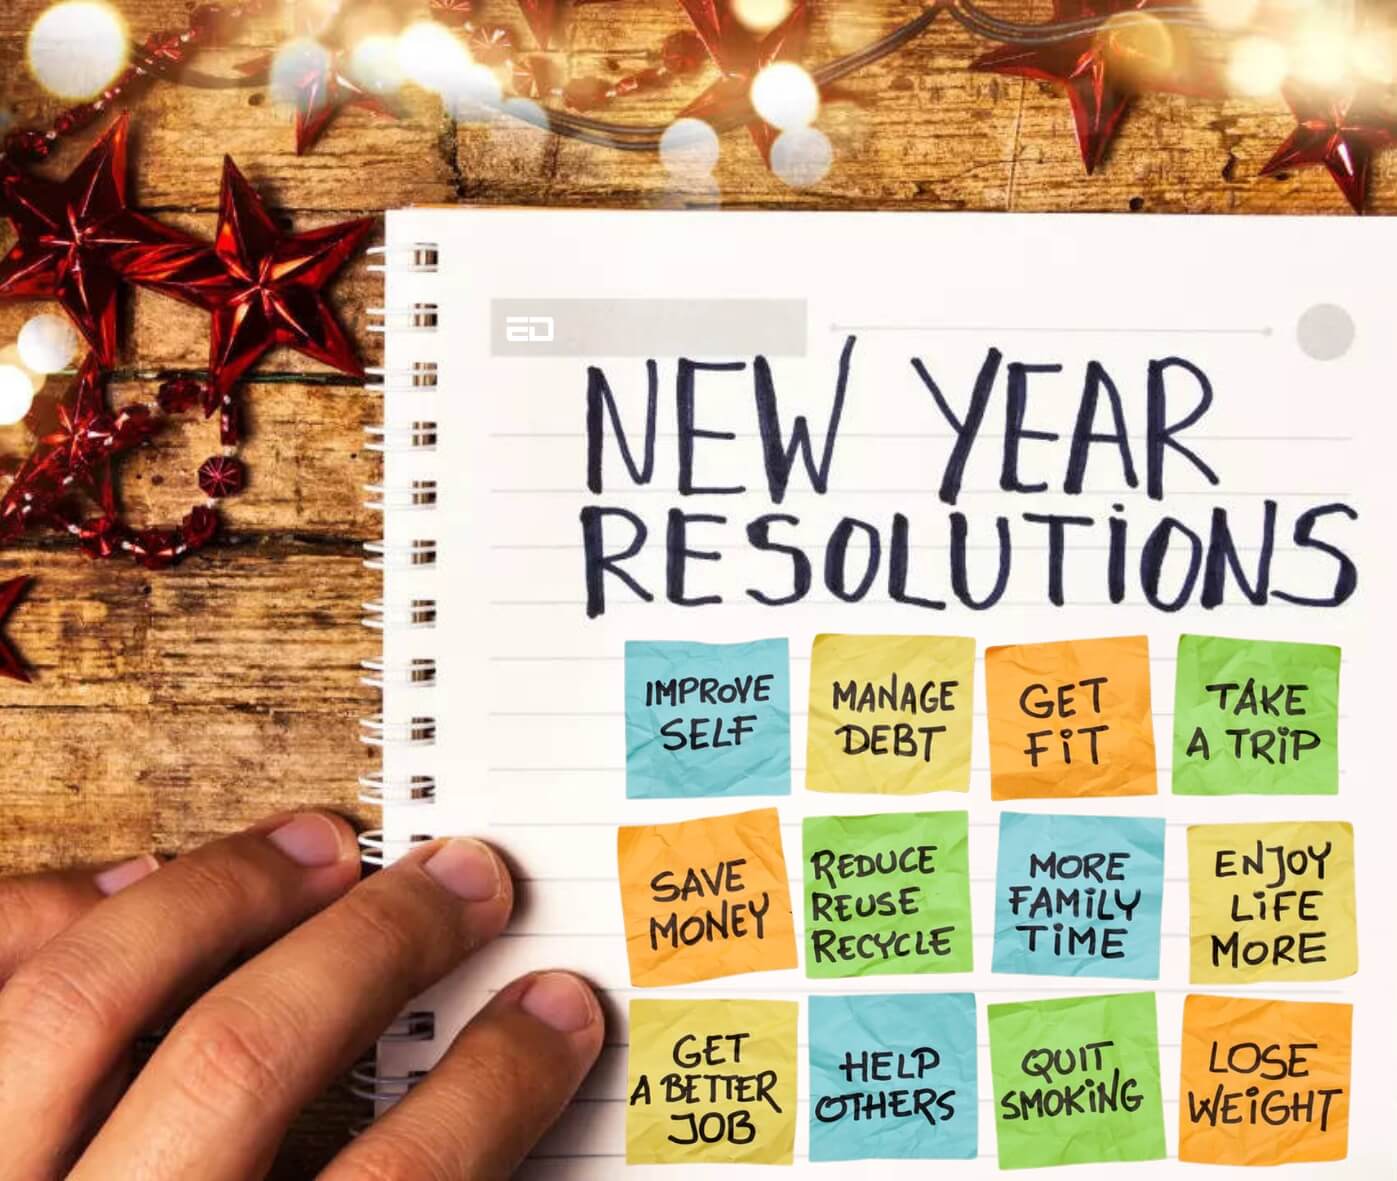 ED
NEW YEAR
RESOLUTIONS
IMPROVE
SELF
MANAGE
DEBT
GET
FiT
TAKE
A TRiP
SAVE
MONEY
REDUCE
REUSE
RECYCLE
MORE
FAMiLY
TiME
ENJOY
LiFE
MORE
GET
A BETTER
JOB
HELP
OTHERS
QUiT
SMOKiNG
LOSE
WEiGHT